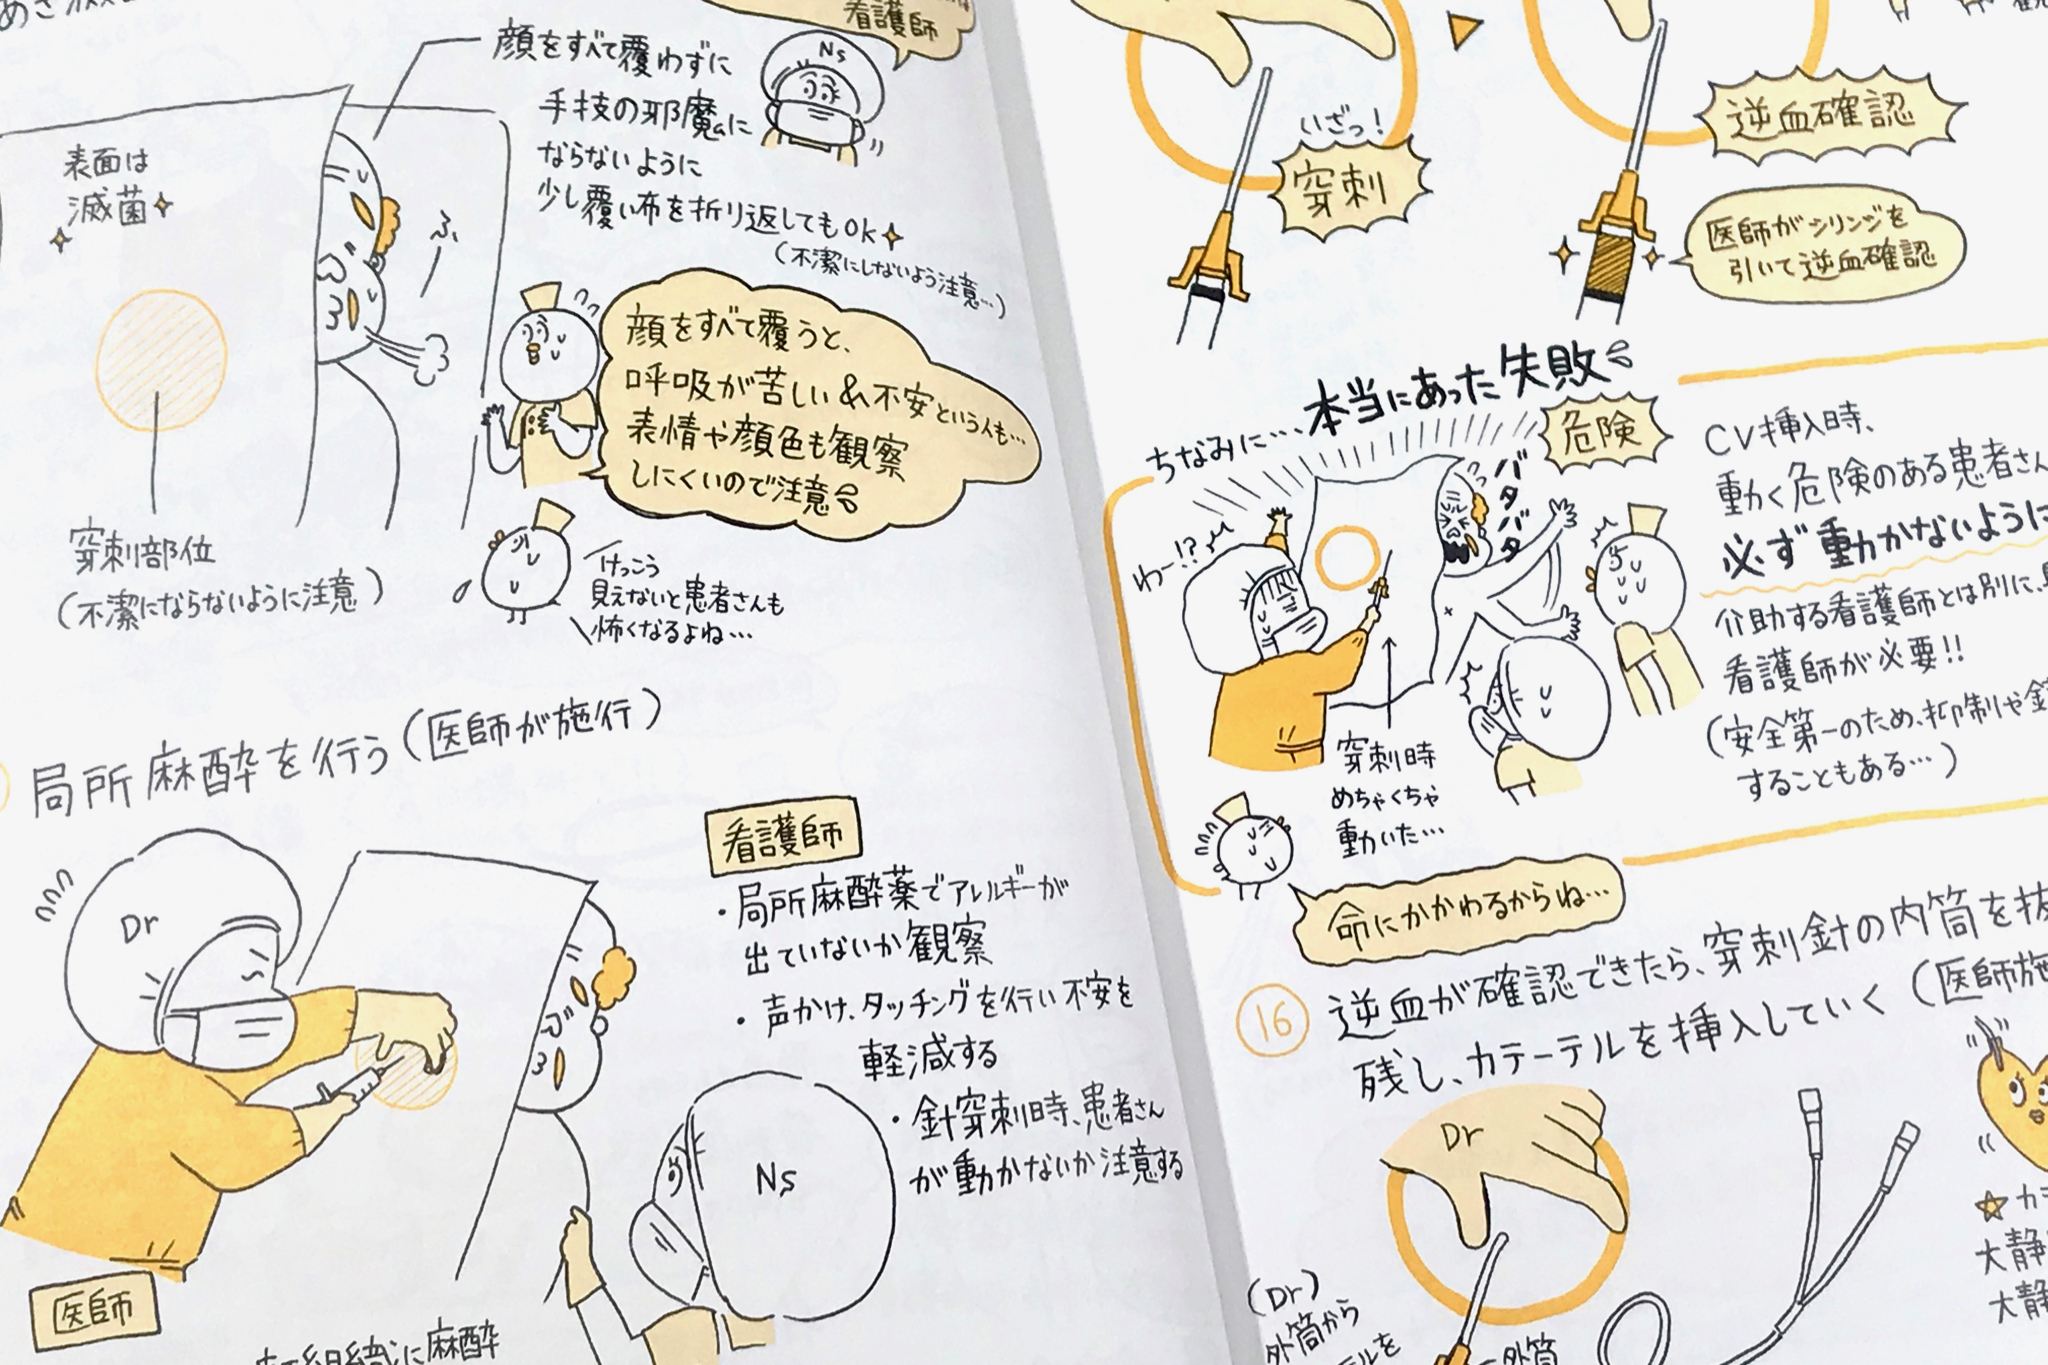 看護師
Ns
顔をすべて覆わずに
手技の邪魔に
ならないように
少し覆い布を折り返してもOK
(不潔にしないよう注意…)
表面は
滅菌
ふー
顔をすべて覆うと、
呼吸が苦しい&不安という人も…
表情や顔色も観察
しにくいので注意
穿刺部位
(不潔にならないように注意)
けっこう
見えないと患者さんも
怖くなるよね…
局所麻酔を行う(医師が施行)
Dr
看護師
・局所麻酔薬でアレルギーが
出ていないか観察
・声かけ、タッチングを行い不安を
軽減する
・針穿刺時、患者さん
が動かないか注意する
Ns
医師
に麻酔
いざっ!
穿刺
逆血確認
医師がシリンジを
引いて逆血確認
ちなみに…本当にあった失敗
危険
バタバタ
わー!?
穿刺時
めちゃくちゃ
動いた…
CV挿入時、
動く危険のある患者さん
必ず動かないように
介助する看護師とは別に、
看護師が必要!!
(安全第一のため、抑制や
することもある…)
命にかかわるからね…
16 逆血が確認できたら、穿刺針の内筒を
残し、カテーテルを挿入していく(医師施
Dr
(Dr)
外筒から
ルを
外筒
★カ
大静
大静